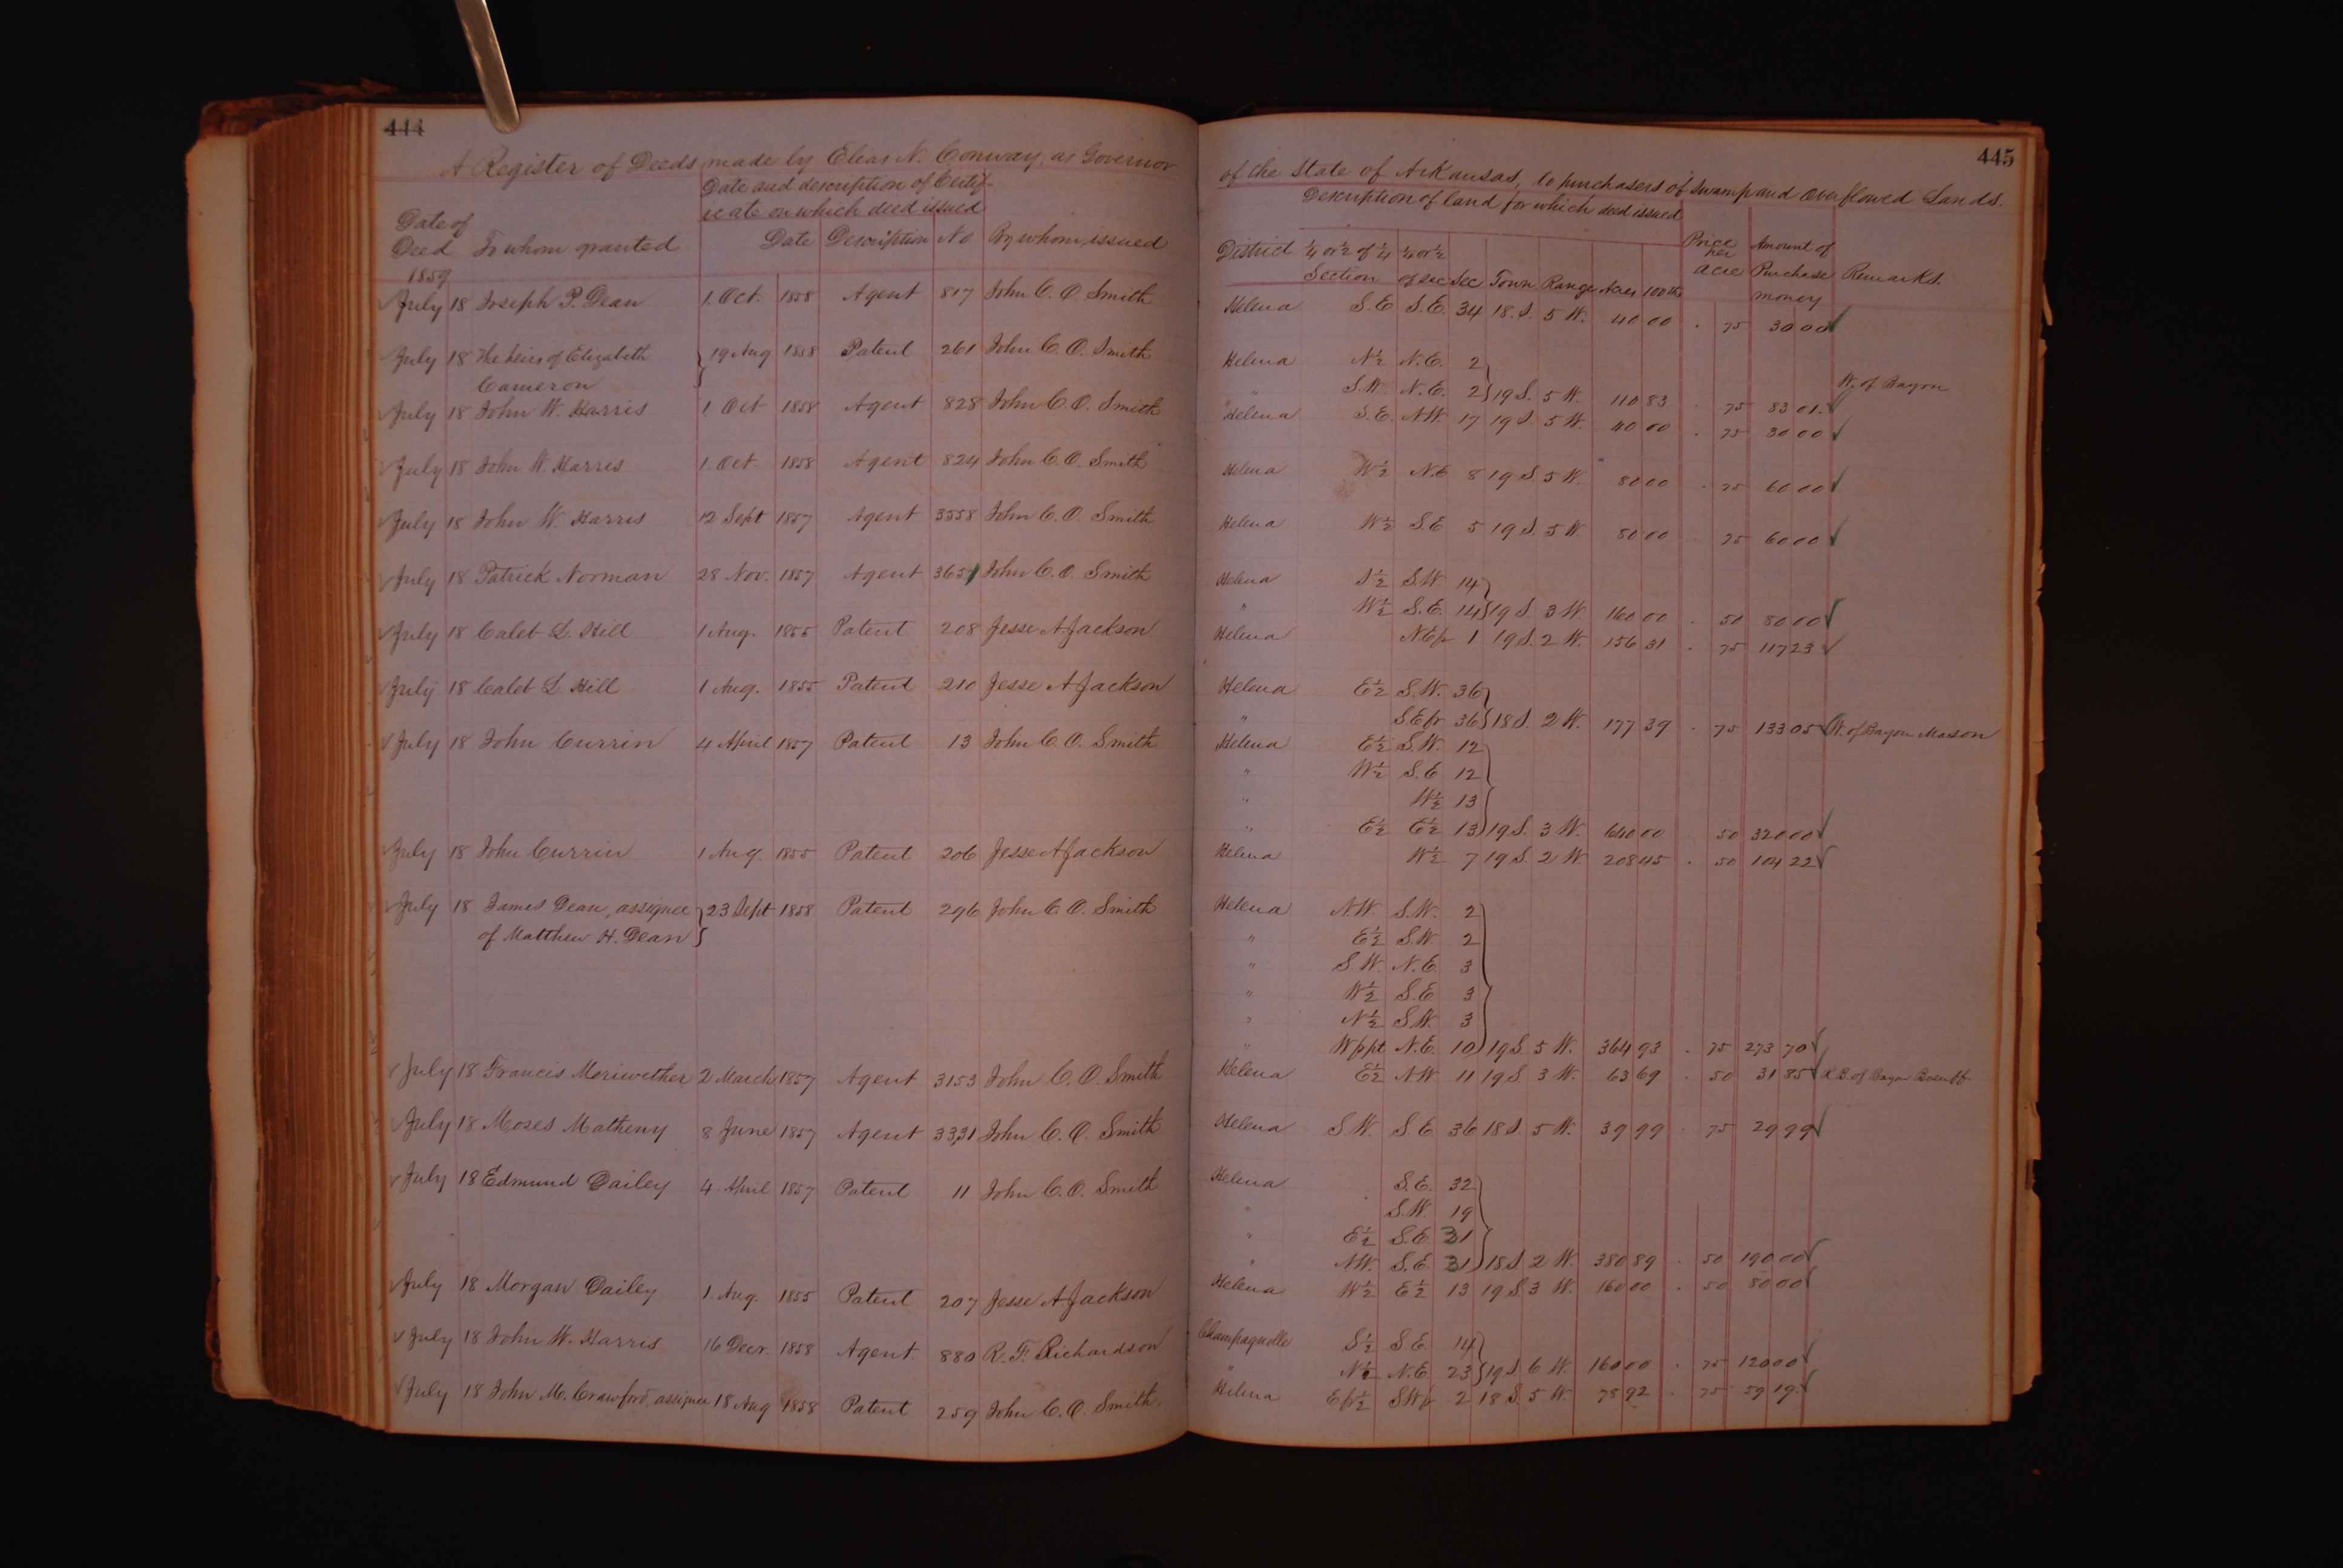 444
A Register of Deeds made by Elias N. Conway, as Governor
Date and description of Certif-
icate on which deed issued
Date of Deed To whom granted Date Description No By whom issued
1859
July 18 Joseph P. Dean 1. Oct. 1858 Agent 817 John C. O. Smith
July 18 The heirs of Elizabeth } 19 Aug 1858 Patent 261 John C. O. Smith
Cameron
July 18 John W. Harris 1. Oct 1858 Agent 828 John C. O. Smith
July 18 John W. Harris 1. Oct. 1858 Agent 824 John C. O. Smith
July 18 John W. Harris 12 Sept 1857 Agent 3558 John C. O. Smith
July 18 Patrick Norman 28 Nov. 1857 Agent 3651 John C. O. Smith
July 18 Caleb L. Hill 1 Aug. 1855 Patent 208 Jesse A Jackson
July 18 Caleb L. Hill 1 Aug. 1855 Patent 210 Jesse A Jackson
July 18 John Currin 4 April 1857 Patent 13 John C. O. Smith
July 18 John Currin 1 Aug. 1855 Patent 206 Jesse A Jackson
July 18 James Dean, assignee } 23 Sept 1858 Patent 296 John C. O. Smith
of Matthew H. Dean
July 18 Francis Meriwether 2 March 1857 Agent 3153 John C. O. Smith
July 18 Moses Matheny 8 June 1857 Agent 3331 John C. O. Smith
July 18 Edmund Dailey 4 April 1857 Patent 11 John C. O. Smith
July 18 Morgan Dailey 1 Aug. 1855 Patent 207 Jesse A Jackson
July 18 John W. Harris 16 Decr. 1858 Agent 880 R. F. Richardson
July 18 John M. Crawford, assignee 18 Aug 1858 Patent 259 John C. O. Smith
445
of the State of Arkansas, to purchasers of Swamp and Overflowed Lands.
Description of land for which deed issued
District ¼ or ½ of ¼ Section ¼ or ½ of sec Sec Town Range Acres 100ths Price per acre Amount of Purchase money Remarks.
Helena S.E S.E. 34 18. S. 5 W. 40 00 . 75 30 00
Helena N½ N.E. 2
" S.W. N.E. 2 } 19 S. 5 W. 110 83 . 75 83 01. W. of Bayou
Helena S.E. NW. 17 19 S. 5 W. 40 00 . 75 30 00
Helena W½ N.E 8 19 S. 5 W. 80 00 . 75 60 00
Helena W½ S.E 5 19 S. 5 W 80 00 75 60 00
Helena S½ S.W. 14
" W½ S.E. 14 } 19 S. 3 W. 160 00 . 50 80 00
Helena N.E fr 1 19 S. 2 W. 156 31 . 75 117 23
Helena E½ S.W. 36
" S.E fr 36 } 18 S. 2 W. 177 39 . 75 133 05 W. of Bayou Mason
Helena E½ S.W. 12
" W½ S.E 12
" W½ 13
" E½ E½ 13 } 19 S. 3 W. 640 00 50 320 00
Helena W½ 7 19 S. 2 W. 208 45 . 50 104 22
Helena N.W. S.W. 2
" E½ S.W. 2
" S.W. N.E. 3
" W½ S.E 3
" N½ S.W. 3
" W fr pt N.E. 10 } 19 S. 5 W. 364 93 . 75 273 70
Helena E½ NW 11 19 S. 3 W. 63 69 . 50 31 85 R.B. of Bayou Boeuff
Helena S.W. S.E 36 18 S. 5 W. 39 99 75 29 99
Helena S.E. 32
" S.W. 19
" E½ S.E. 31
" NW. S.E. 31 } 18 S. 2 W. 380 89 . 50 190 00
Helena W½ E½ 13 19 S. 3 W. 160 00 . 50 80 00
Champagnolle S½ S.E. 14
" N½ N.E. 23 } 19 S. 6 W. 160 00 . 75 120 00
Helena E fr ½ SW fr 2 18 S. 5 W. 78 92 . 75 59 19.